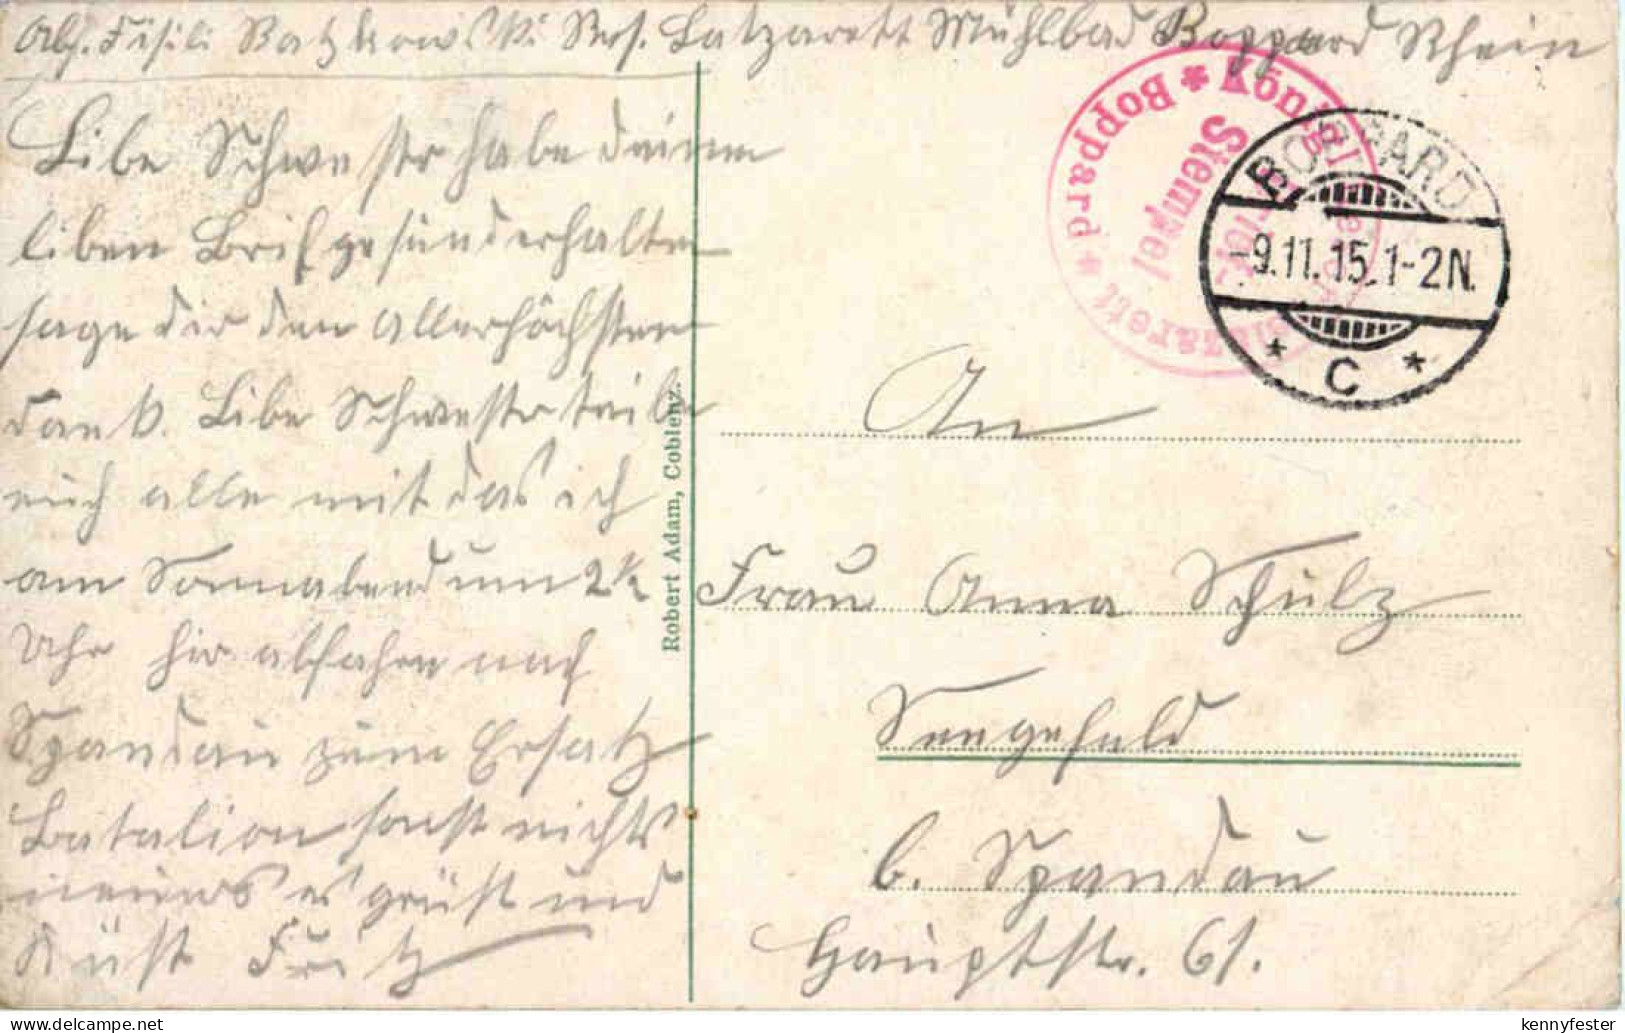 Abs. Füsili Batzkowski Res. Latzarett Mühlbad Boppard Rhein
Libe Schwestr habe deinen
liben Brif gesund erhalten
sage dir den allerhöchsten
dank. Libe Schwestr teile
euch alle mit das ich
am Sonnabend um 2½
Uhr hir abfahre nach
Spandau zum Ersatz
Batalion sonst nichts
neues es grüst und
Küst Fritz
Robert Adam, Coblenz.
Königl
Reserve
Lazarett * Boppard *
Stempel
BOPPARD
-9.11.15.1-2N.
* C *
An
Frau Anna Schulz
Seegefeld
b. Spandau
Hauptstr. 61.
kennyfester